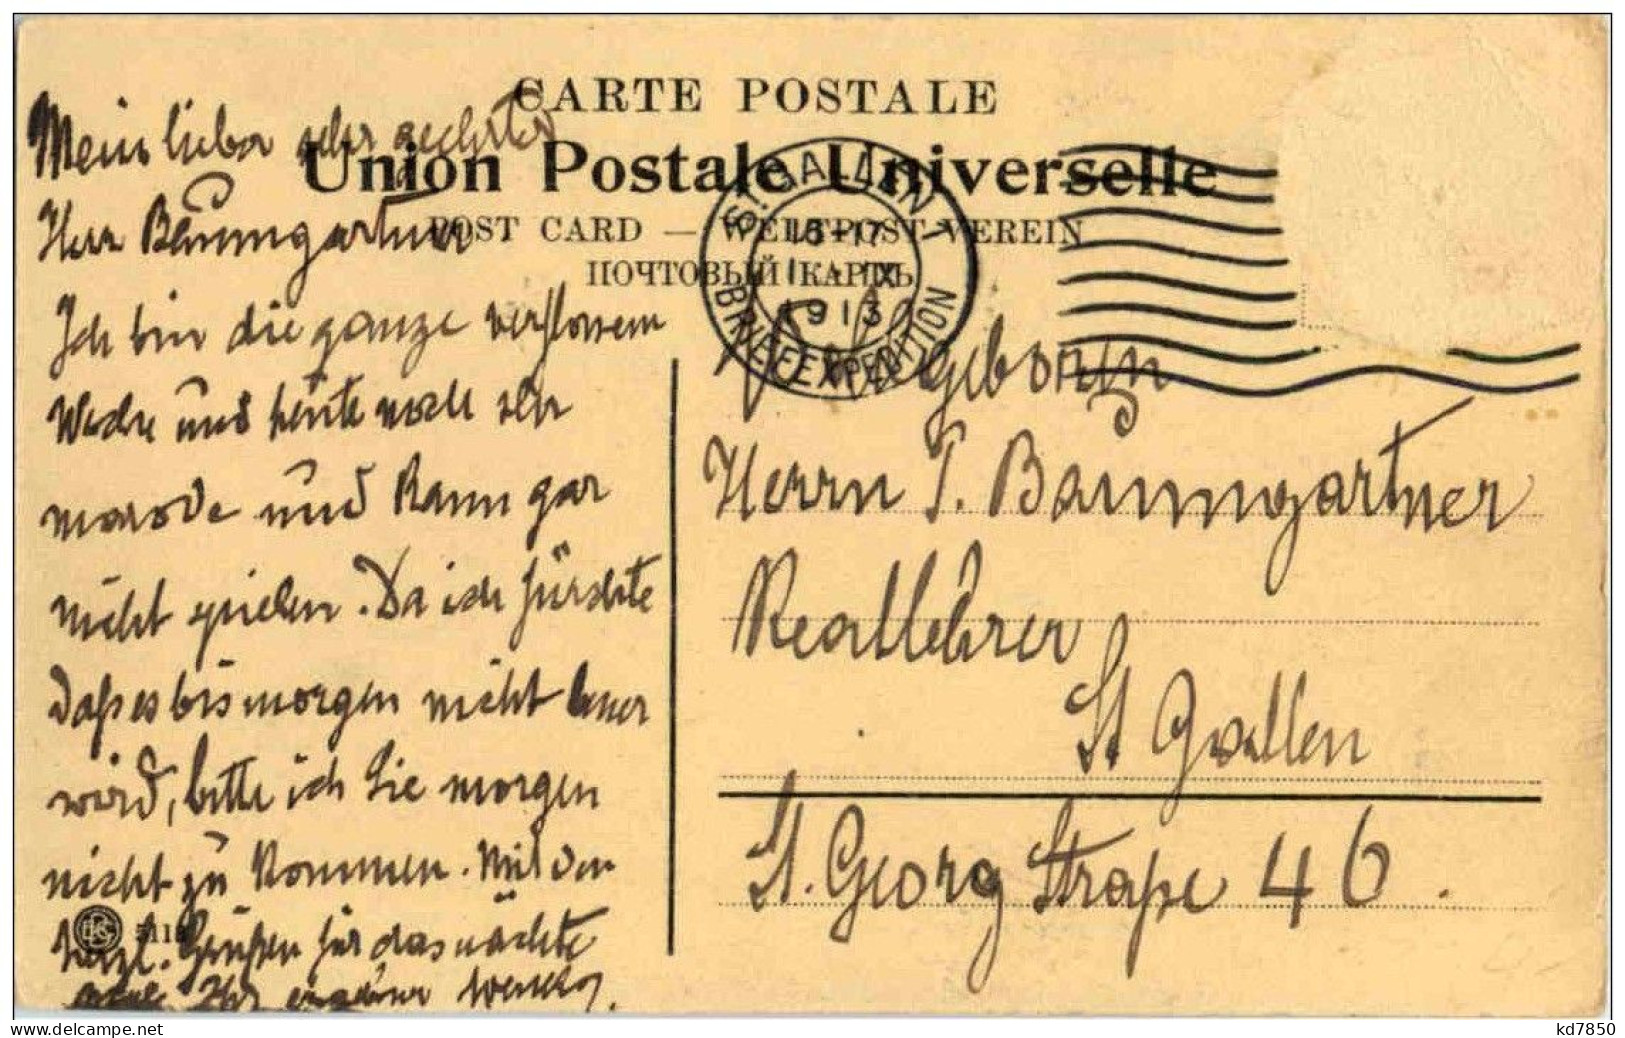 CARTE POSTALE
Union Postale Universelle
POST CARD — WELTPOST-VEREIN
ПОЧТОВЫЙ КАРТЪ
ST. GALLEN 1
15-17
1. IX
1913
BRIEFEXPEDITION
Mein lieber sehr geehrter
Herr Baumgartner
Ich bin die ganze verflossene
Woche und heute noch sehr
marode und kann gar
nicht spielen. Da ich fürchte
daß es bis morgen nicht besser
wird, bitte ich Sie morgen
nicht zu kommen. Mit den
herzl. Grüßen für das nächste
Ihr
geboren
Herrn J. Baumgartner
Reallehrer
St Gallen
St. Georg Straße 46.
kd7850